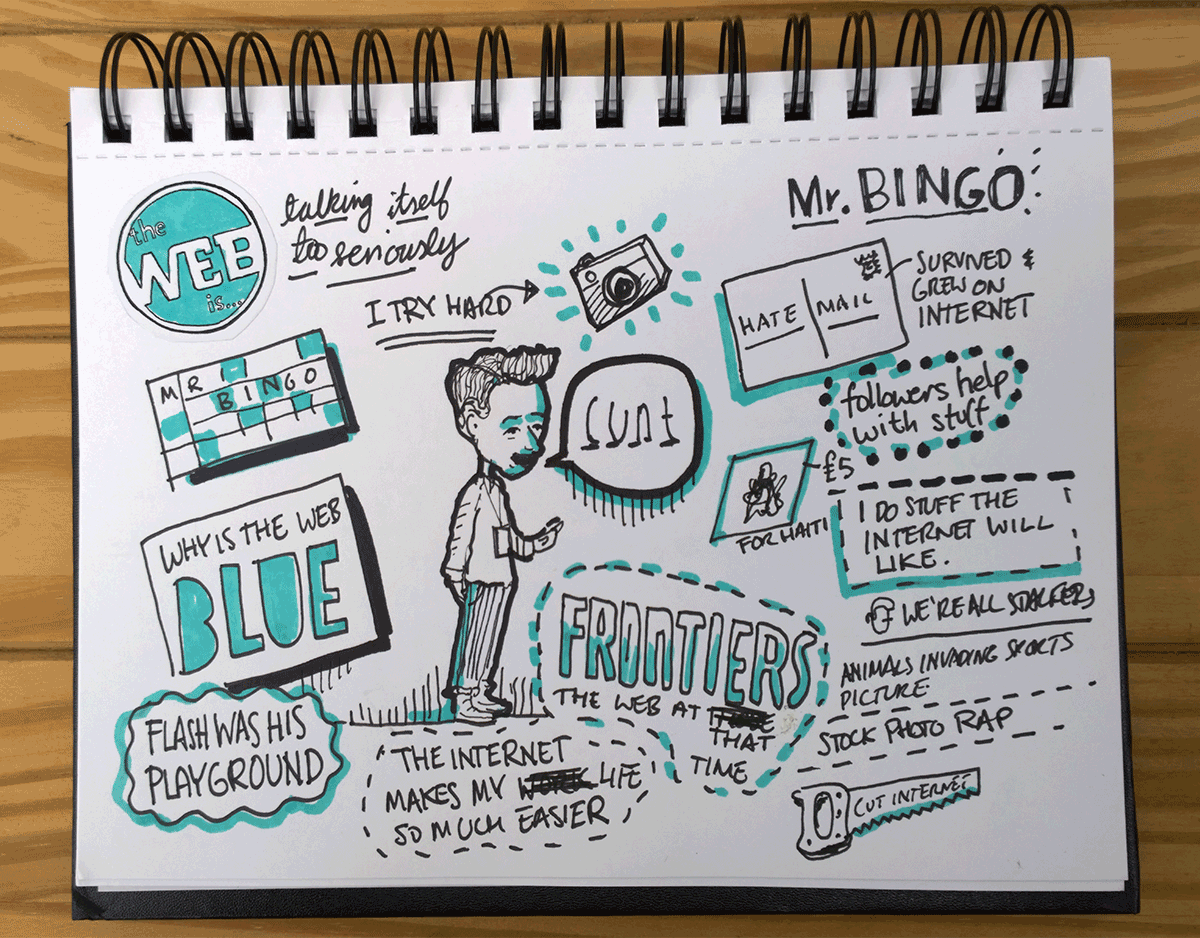 the
WEB
is...
talking itself
too seriously
Mr. BINGO
I TRY HARD
HATE MAIL
SURVIVED &
GREW ON
INTERNET
MR
BINGO
followers help
with stuff
£5
FOR HAITI
I DO STUFF THE
INTERNET WILL
LIKE.
WHY IS THE WEB
BLUE
WE'RE ALL STALKERS
FRONTIERS
THE WEB AT
THAT
TIME
ANIMALS INVADING SPORTS
PICTURE
STOCK PHOTO RAP
FLASH WAS HIS
PLAYGROUND
THE INTERNET
MAKES MY LIFE
SO MUCH EASIER
CUT INTERNET